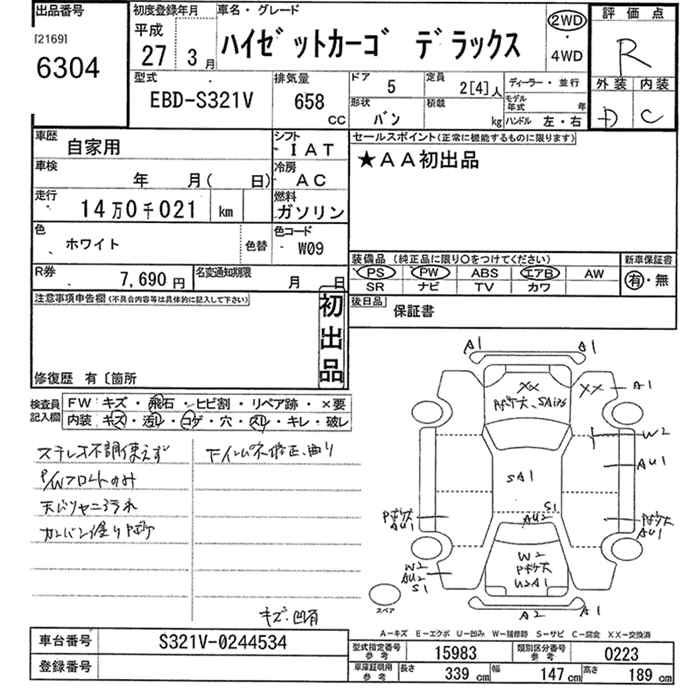 出品番号
[2169]
6304
初度登録年月
平成
27 3月
車名・グレード
ハイゼットカーゴ デラックス
2WD
・
4WD
評価点
R
外装 内装
D C
型式
EBD-S321V
排気量
658
CC
ドア
5
定員
2[4]人
ディーラー・並行
形状
バン
積載
kg
モデル年式 年
ハンドル 左・右
車歴
自家用
シフト
IAT
車検
年 月( 日)
冷房
AC
走行
14万0千021 km
燃料
ガソリン
色
ホワイト
色替
色コード
W09
R券
7,690円
名変通知期限
月 日
セールスポイント(正常に機能するものに限ります)
★AA初出品
装備品(純正品に限り○をつけてください)
PS PW ABS エアB AW
SR ナビ TV カワ
新車保証書
有・無
後日品
保証書
注意事項申告欄(不具合内容等は具体的に記入して下さい)
初出品
修復歴 有〔箇所
検査員記入欄
FW キズ・飛石・ヒビ割・リペア跡・×要
内装 キズ・汚レ・コゲ・穴・スレ・キレ・破レ
ステレオ不調使えず
P/Wフロントのみ
天バリヤニ汚れ
カンバン塗りボケ
下インパネ修正、曲り
キズ・凹有
A1
A1
XX
XX
A1
W2
AU1
SA1
S1
AU2
AU1
AU1
W2
AU2
S1
W2
U2A1
A2
A1
スペア
A-キズ E-エクボ U-凹み W-補修跡 S-サビ C-腐食 XX-交換済
車台番号
S321V-0244534
登録番号
型式指定番号
参考
15983
類別区分番号
参考
0223
車庫証明用
参考
長さ
339 cm
幅
147 cm
高さ
189 cm